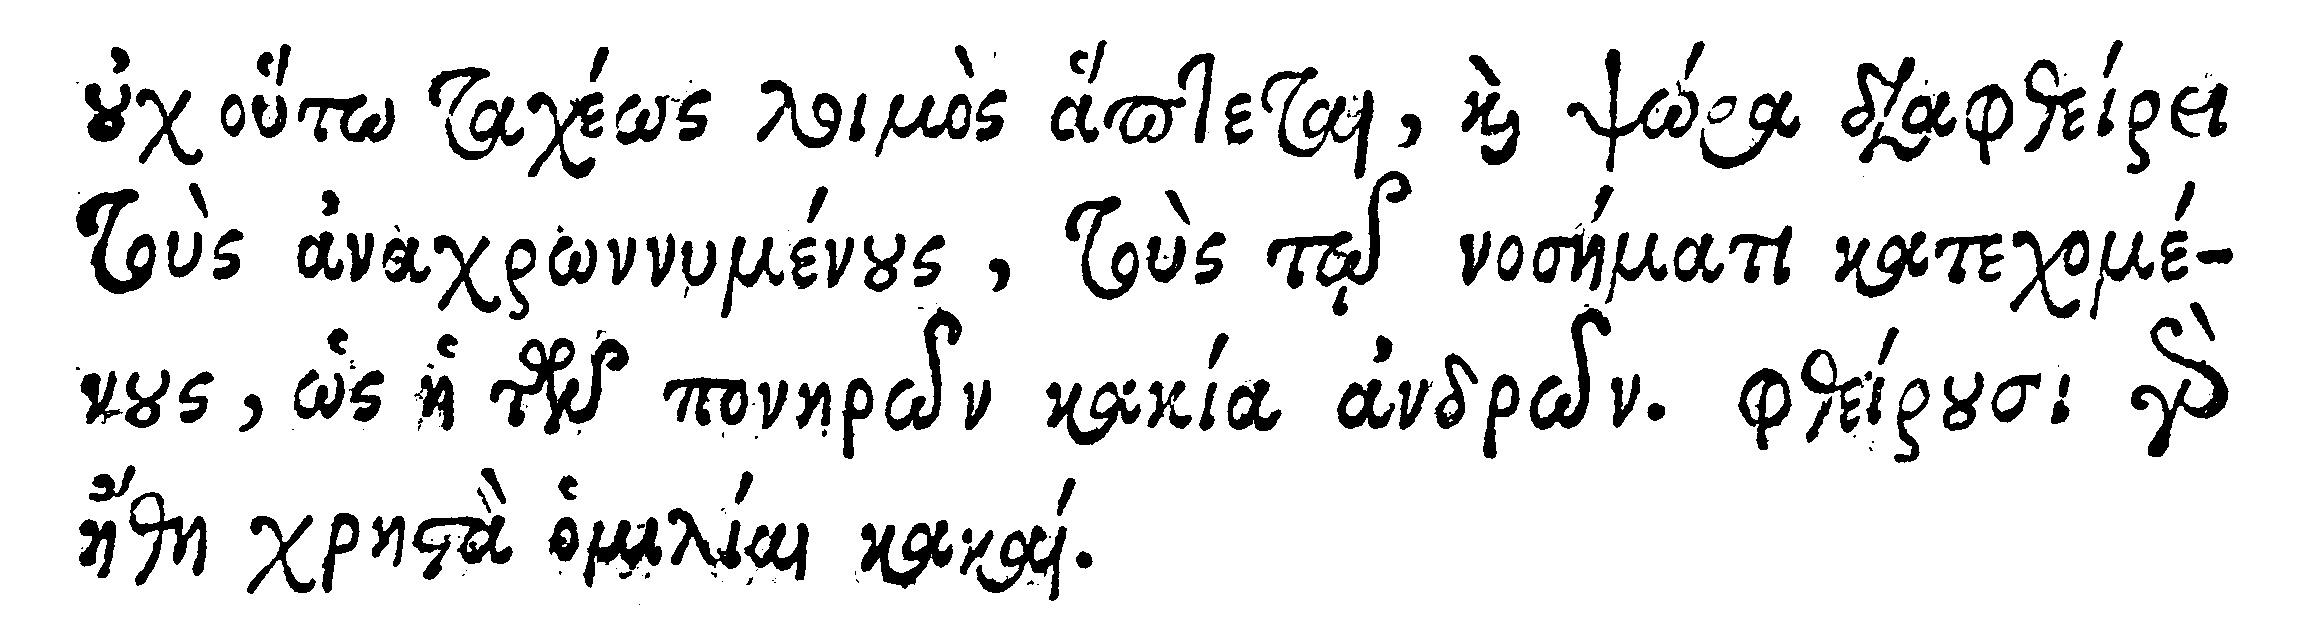 οὐχ οὕτω ταχέως λοιμὸς ἅπτεται, καὶ ψώρα διαφθείρει
τοὺς ἀναχρωννυμένους, τοὺς τῷ νοσήματι κατεχομέ-
νους, ὡς ἡ τῶν πονηρῶν κακία ἀνδρῶν. φθείρουσι γὰρ
ἤθη χρηστὰ ὁμιλίαι κακαί.